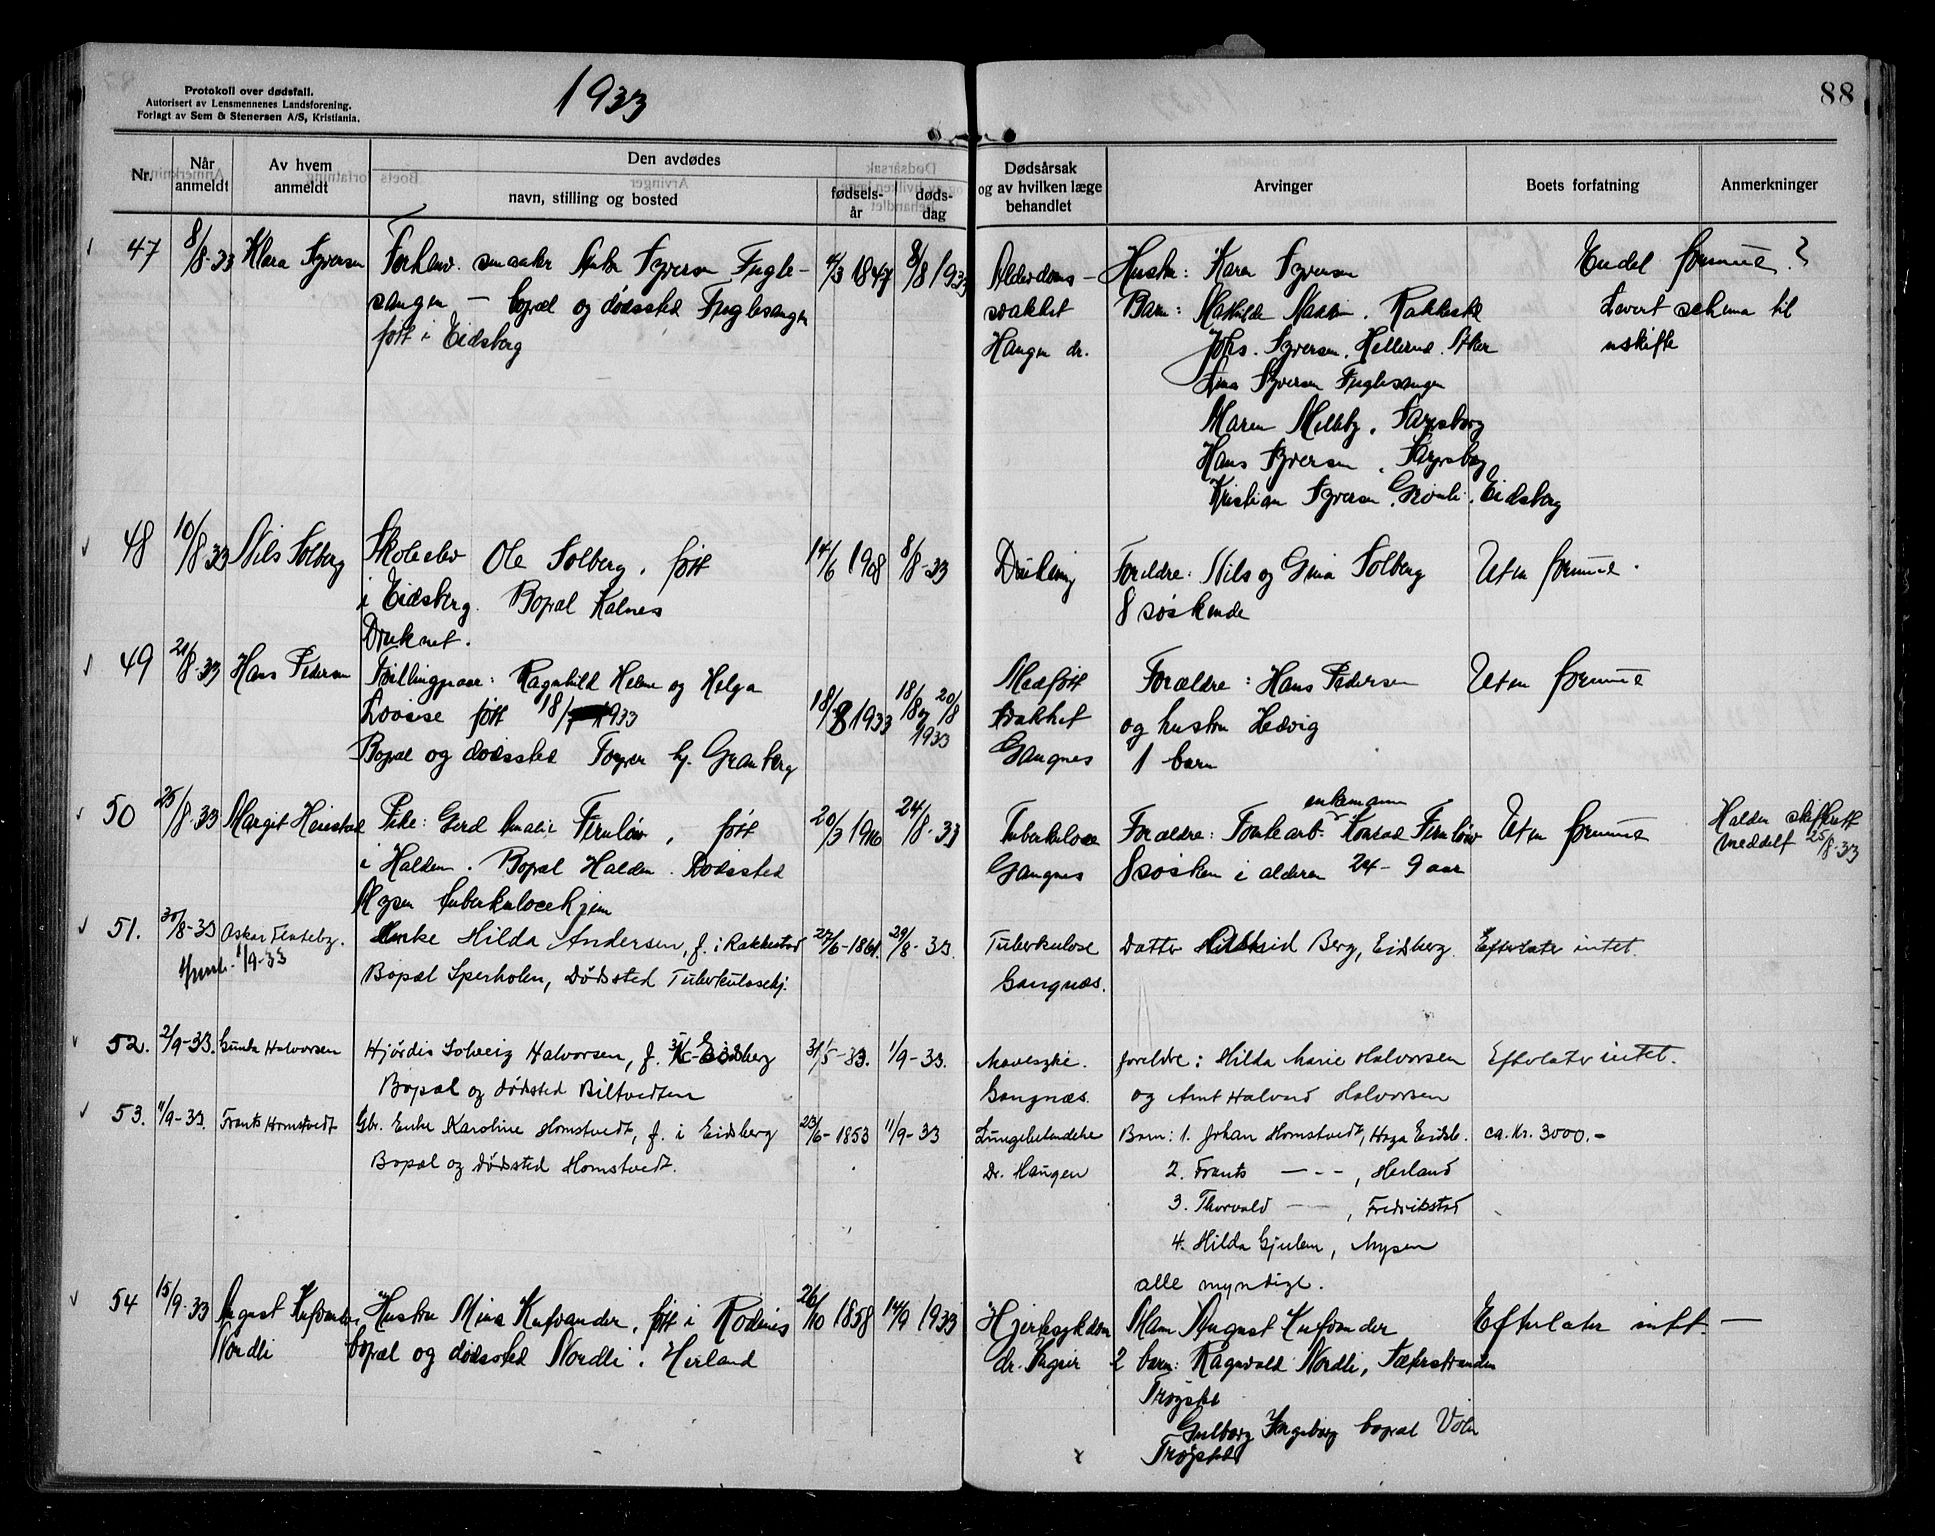 Protokoll over dødsfall.
Autorisert av Lensmennenes Landsforening.
Forlagt av Sem & Stenersen A/S, Kristiania.
1933
88
Nr.
Når anmeldt
Av hvem anmeldt
Den avdødes
navn, stilling og bosted
fødsels-år
døds-dag
Dødsårsak og av hvilken læge behandlet
Arvinger
Boets forfatning
Anmerkninger
47 8/8-33 Klara Syversen Forhenv. Syversen Fugle- 4/3 1847 8/8 1933 Alderdoms- Hustru: Karen Syversen Endel formue?
sangen — bopæl og dødssted Fuglesangen svakket Barn: Mathilde Rakkestad Levert schema til
født i Eidsberg Haugen dr. Johs. Syversen. Hellerud. Aker uskifte
Lina Syversen Fuglesangen
Maren Melleby. Sarpsborg
Hans Syversen. Sarpsborg
Kristian Syversen. Eidsberg
48 10/8-33 Nils Solberg Skoleelev Ole Solberg. født 14/6 1908 8/8-33 Drukning Forældre: Nils og Gina Solberg Uten formue.
i Eidsberg. Bopæl Kalnes 8 søskende
Druknet.
49 21/8-33 Hans Pedersen Tvillingpaar: Ragnhild Helene og Helga 18/8 1933 18/8 og 20/8 1933 Medfött Forældre: Hans Pedersen Uten formue
Lovise født 18/ 1933 svakhet og hustru Hedvig
Bopæl og dødssted Torper hj. Granberg Gangnes 1 barn
50 25/8-33 Margit Harestad Pike: Gerd Amalie Fernlöw, født 20/3 1916 24/8-33 Tuberkulose Forældre: enkemann Konrad Fernlöw Uten formue Halden skifterett
i Halden. Bopæl Halden. Dødssted Gangnes 8 søsken i alderen 24-9 aar meddelt 25/8-33
Mysen tuberkulosehjem
51. 30/8-33 Oskar Flateby. Enke Hilda Andersen, f. i Rakkestad 27/6-1861. 29/8-33. Tuberkulose Datter Astrid Berg, Eidsberg. Efterlater intet.
1/9-33 Bopæl Sperholen, Dødsted Tuberkulosehj. Gangnæs.
52. 2/9-33. Gunda Halvorsen Hjørdis Solveig Halvorsen, f. i Eidsberg 31/5-33. 1/9-33. Mavesyke. foreldre: Hilda Marie Halvorsen Efterlater intet.
Bopæl og dødsted Biltvedten Gangnæs. og Arnt Halvard Halvorsen
53. 11/9-33. Frants Homstvedt Gbr. Enke Karoline Homstvedt, f. i Eidsberg 23/6-1853 11/9-33 Lungebetendelse Barn: 1. Johan Homstvedt, Haga Eidsb. ca. Kr. 3000.-
Bopæl og dødsted Homstvedt. Dr. Haugen 2. Frants — - -, Herland
3. Thorvald — -, Fredrikstad
4. Hilda Gjulem, Mysen
alle myndige.
54 15/9-33 August Kufvander, Hustru Mina Kufvander, født i Rødenes 26/10 1858 14/9 1933 Hjertesykdom Mann August Kufvander Efterlater intet. —
Nordli bopæl og dødssted Nordli. Herland dr. 2 barn: Ragnvald Nordli, Sæterstranden
Trøgstad
Gulborg Ingeborg bopæl
Trøgstad